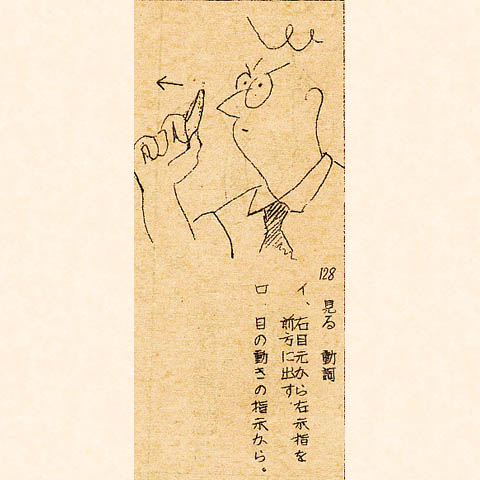 128
見る 動詞
イ、右目元から右示指を
前方に出す。
ロ．目の動きの指示から。